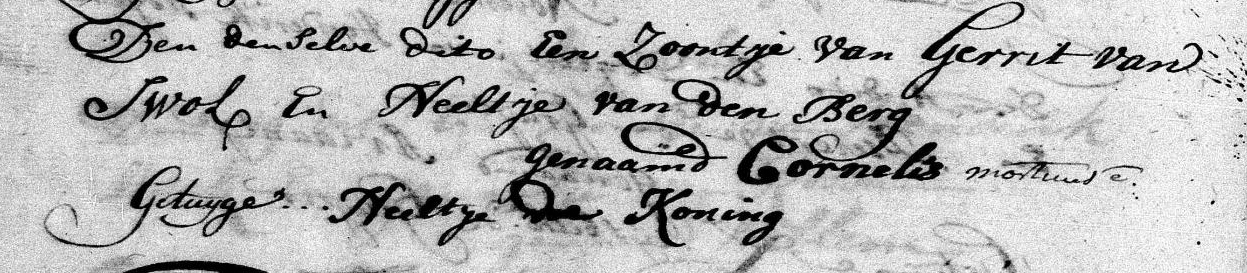 Den denselve dito Een Zoontje van Gerrit van
Swol En Neeltje van den Berg
genaamd Cornelis mortuus e.
Getuyge... Neeltje de Koning